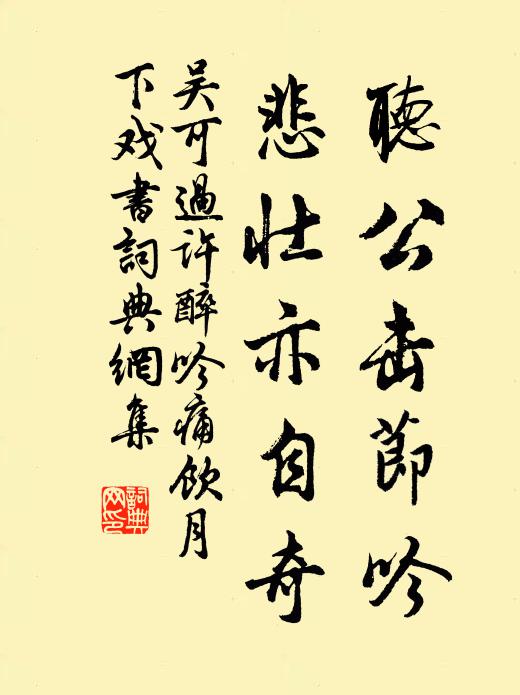 聽公击節吟
悲壯亦自奇
吴可過許醉吟痛飲月
下戏書詞典網集
詞典
网印